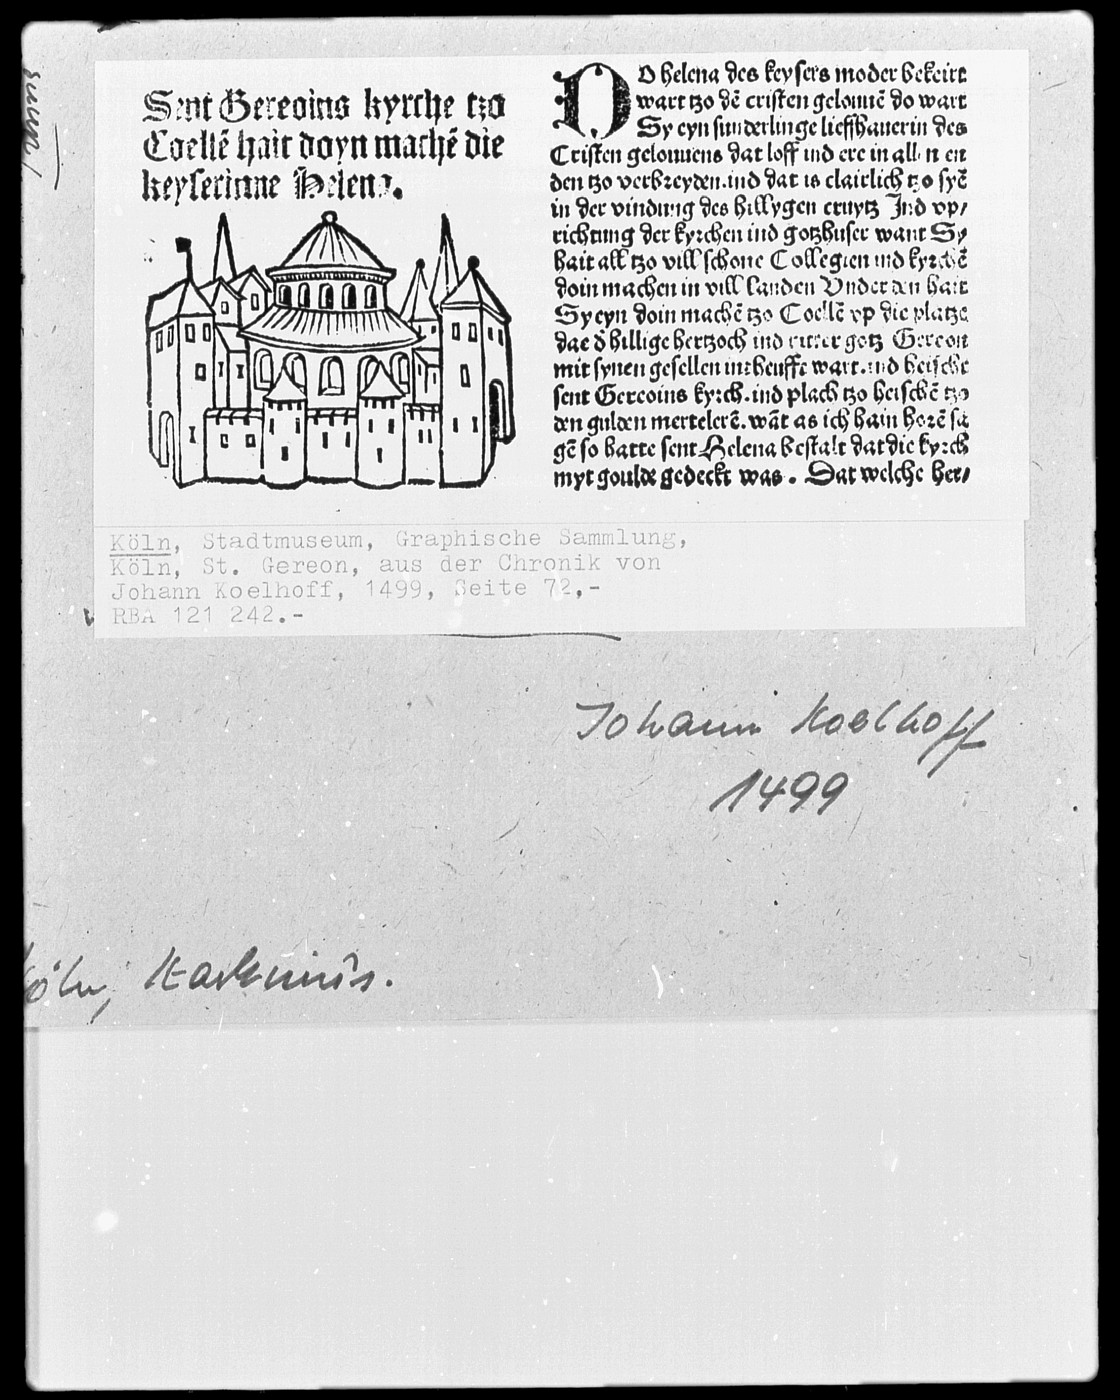 Sent Gereoins kyrche tzo
Coellē hait doyn machē die
keyserinne Helena.
DO helena des keysers moder bekeirt
wart tzo dē cristen gelouuē do wart
Sy eyn sunderlinge lieffhauerin des
Cristen gelouuens dat loff ind ere in allen en
den tzo verbreyden.ind dat is clairlich tzo syē
in der vindung des hillygen cruytz Ind vp/
richtung der kyrchen ind gotzhuser want Sy
hait all tzo vill schone Collegien ind kyrchē
doin machen in vill landen Vnder den hait
Sy eyn doin machē tzo Coellē vp die platze
dae d hillige hertzoch ind ritter gotz Gereon
mit synen gesellen int heufft wart.ind heische
sent Gereoins kyrch.ind plach tzo heischē tzo
den gulden mertelerē.wāt as ich hain horē sa
gē so hatte sent Helena bestalt dat die kyrch
myt goulde gedeckt was. Dat welche her/
Köln, Stadtmuseum, Graphische Sammlung,
Köln, St. Gereon, aus der Chronik von
Johann Koelhoff, 1499, Seite 72,-
RBA 121 242.-
Johann Koelhoff
1499
Köln,